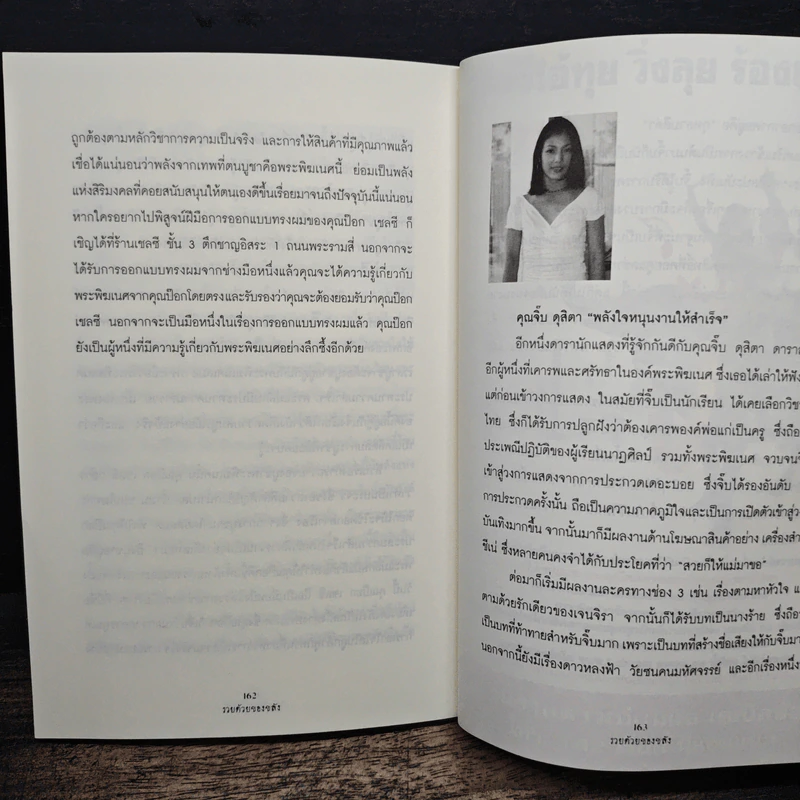 ถูกต้องตามหลักวิชาการความเป็นจริง และการให้สินค้าที่มีคุณภาพแล้ว
เชื่อได้แน่นอนว่าพลังจากเทพที่ตนบูชาคือพระพิฆเนศนี้ ย่อมเป็นพลัง
แห่งสิริมงคลที่คอยสนับสนุนให้ตนเองดีขึ้นเรื่อยมาจนถึงปัจจุบันนี้แน่นอน
หากใครอยากไปพิสูจน์ฝีมือการออกแบบทรงผมของคุณป๊อก เชลซี ก็
เชิญได้ที่ร้านเชลซี ชั้น 3 ตึกชาญอิสระ 1 ถนนพระรามสี่ นอกจากจะ
ได้รับการออกแบบทรงผมจากช่างมือหนึ่งแล้วคุณจะได้ความรู้เกี่ยวกับ
พระพิฆเนศจากคุณป๊อกโดยตรงและรับรองว่าคุณจะต้องยอมรับว่าคุณป๊อก
เชลซี นอกจากจะเป็นมือหนึ่งในเรื่องการออกแบบทรงผมแล้ว คุณป๊อก
ยังเป็นผู้หนึ่งที่มีความรู้เกี่ยวกับพระพิฆเนศอย่างลึกซึ้งอีกด้วย
162
รวยด้วยของขลัง
คุณจิ๊บ ดุสิตา “พลังใจหนุนงานให้สำเร็จ”
อีกหนึ่งดารานักแสดงที่รู้จักกันดีกับคุณจิ๊บ ดุสิตา
อีกผู้หนึ่งที่เคารพและศรัทธาในองค์พระพิฆเนศ ซึ่งเธอได้เล่าให้ฟัง
แต่ก่อนเข้าวงการแสดง ในสมัยที่จิ๊บเป็นนักเรียน ได้เคยเลือกวิช
ไทย ซึ่งก็ได้รับการปลูกฝังว่าต้องเคารพองค์พ่อแก่เป็นครู ซึ่งถือ
ประเพณีปฏิบัติของผู้เรียนนาฏศิลป์ รวมทั้งพระพิฆเนศ จวบจน
เข้าสู่วงการแสดงจากการประกวดเดอะบอย ซึ่งจิ๊บได้รองอันดับ
การประกวดครั้งนั้น ถือเป็นความภาคภูมิใจและเป็นการเปิดตัวเข้าสู่
บันเทิงมากขึ้น จากนั้นมาก็มีผลงานด้านโฆษณาสินค้าอย่าง เครื่องสำ
ชีเน่ ซึ่งหลายคนคงจำได้กับประโยคที่ว่า “สวยก็ให้แม่มาขอ”
ต่อมาก็เริ่มมีผลงานละครทางช่อง 3 เช่น เรื่องตามหาหัวใจ
ตามด้วยรักเดียวของเจนจิรา จากนั้นก็ได้รับบทเป็นนางร้าย ซึ่งถือ
เป็นบทที่ท้าทายสำหรับจิ๊บมาก เพราะเป็นบทที่สร้างชื่อเสียงให้กับจิ๊บมา
นอกจากนี้ยังมีเรื่องดาวหลงฟ้า วัยซนคนมหัศจรรย์ และอีกเรื่องหนึ่ง
163
รวยด้วยของขลัง